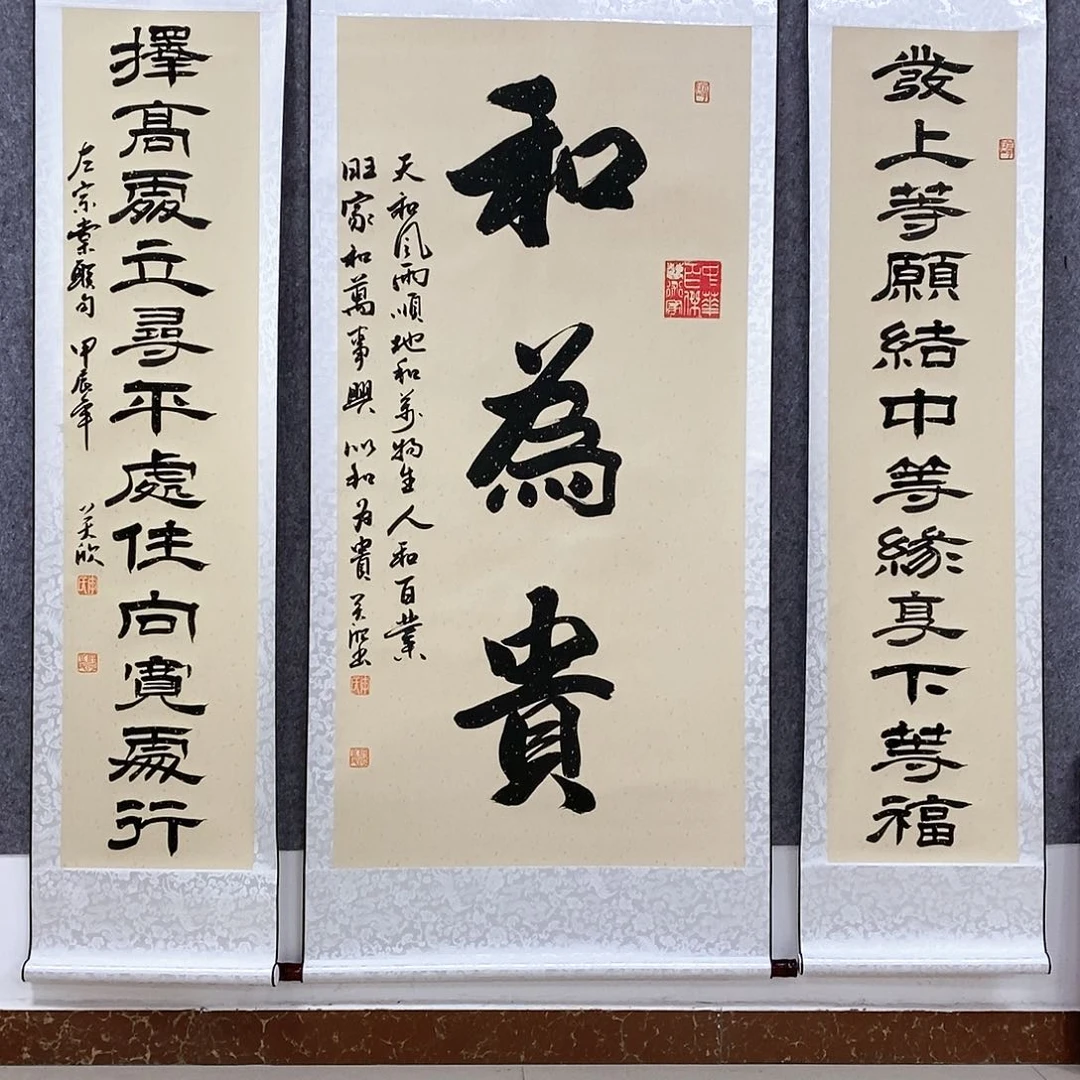 發上等願結中等緣享下等福
和為貴
天和风雨順地和萬物生人和百業
旺家和萬事興以和为貴 美欣书
擇高處立尋平處住向寬處行
左宗棠聯句 甲辰年 美欣